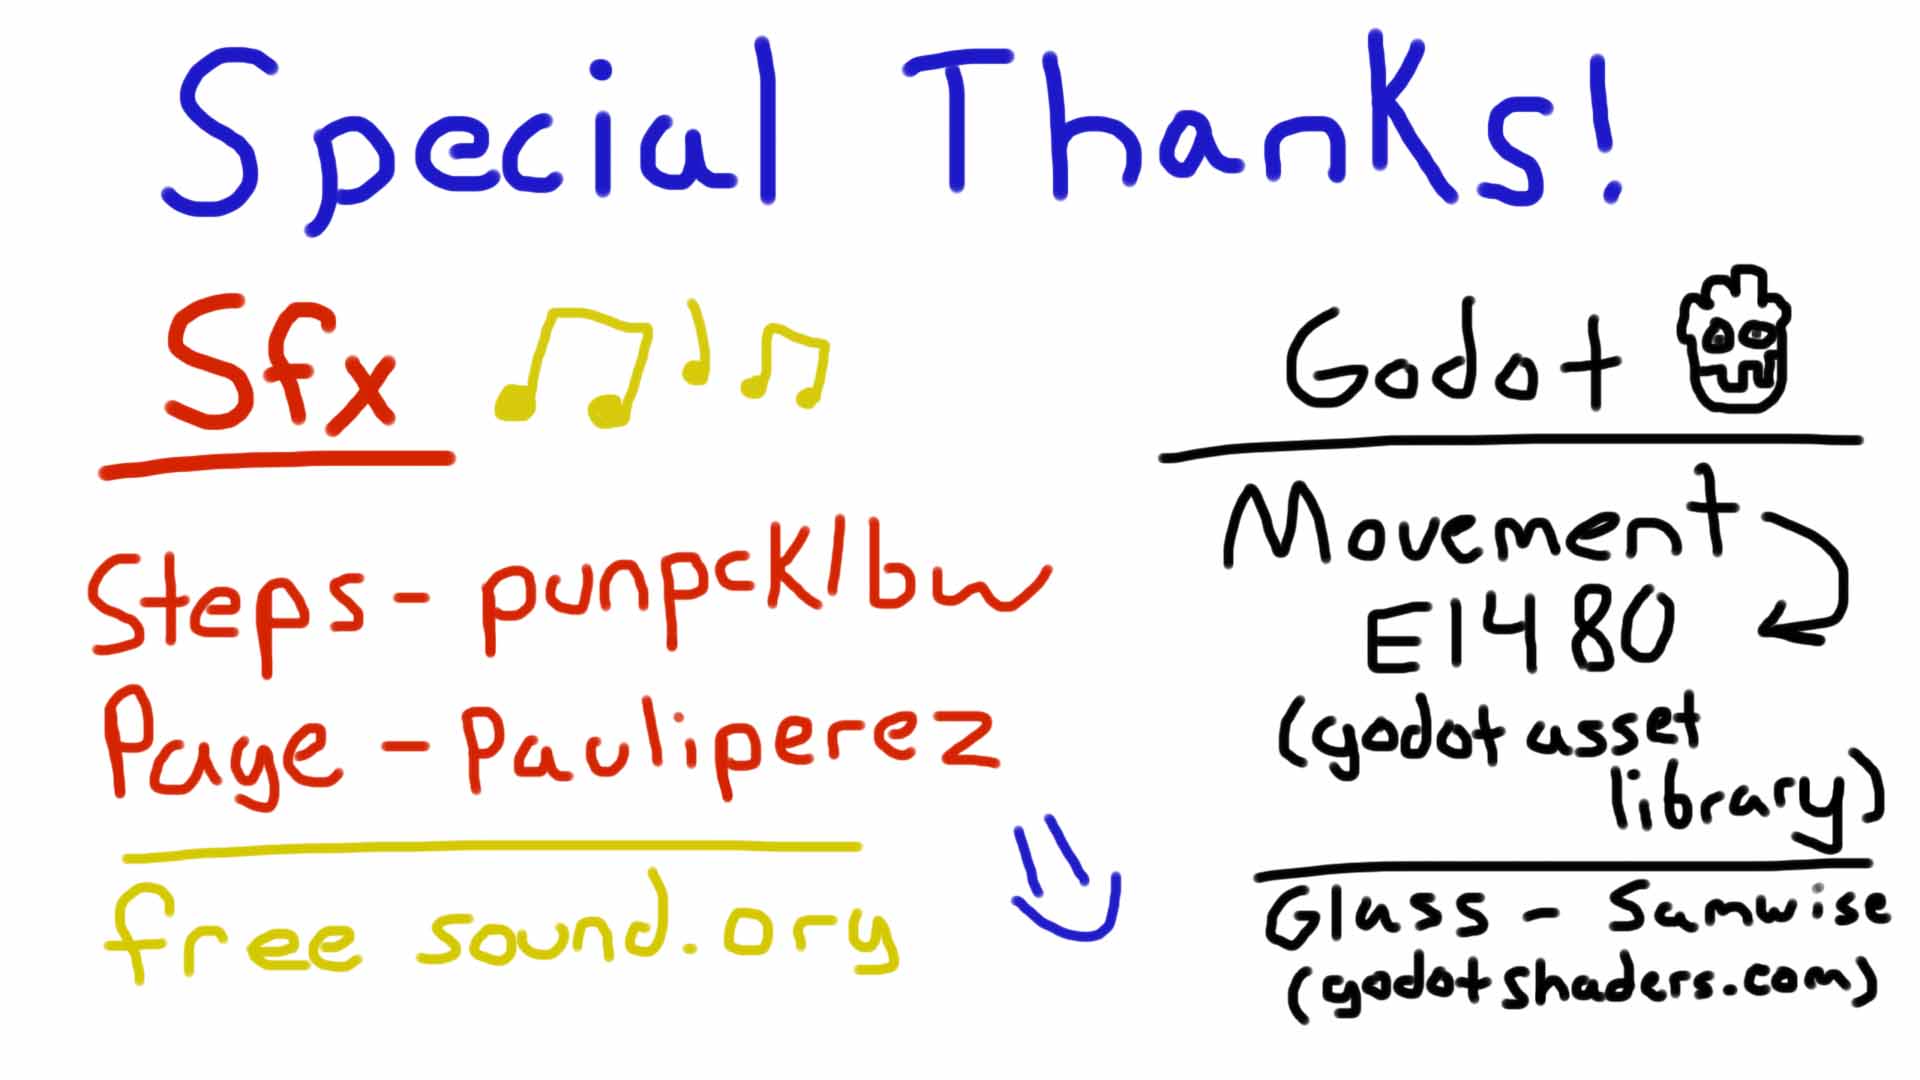 Special Thanks!
Sfx
Steps - punpcklbw
Page - Pauliperez
freesound.org
Godot
Movement
E1480
(godot asset
library)
Glass - Samwise
(godotshaders.com)